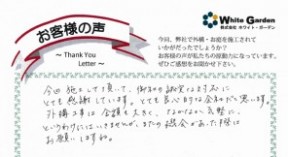 お客様の声
～ Thank You
Letter ～
White Garden
株式会社 ホワイト・ガーデン
今回、弊社で外構・お庭を施工されて
いかがだったでしょうか？
お客様の声が私たちの原動力になっています。
ぜひご感想をお聞かせ下さい。
今回 施工して頂いて、
とても感謝しています。とても良心的な会社だと思います。
外構工事は 金額も大きく、なかなか気軽に
というわけにはいきませんが、またの機会があった際は
お願いしますね。